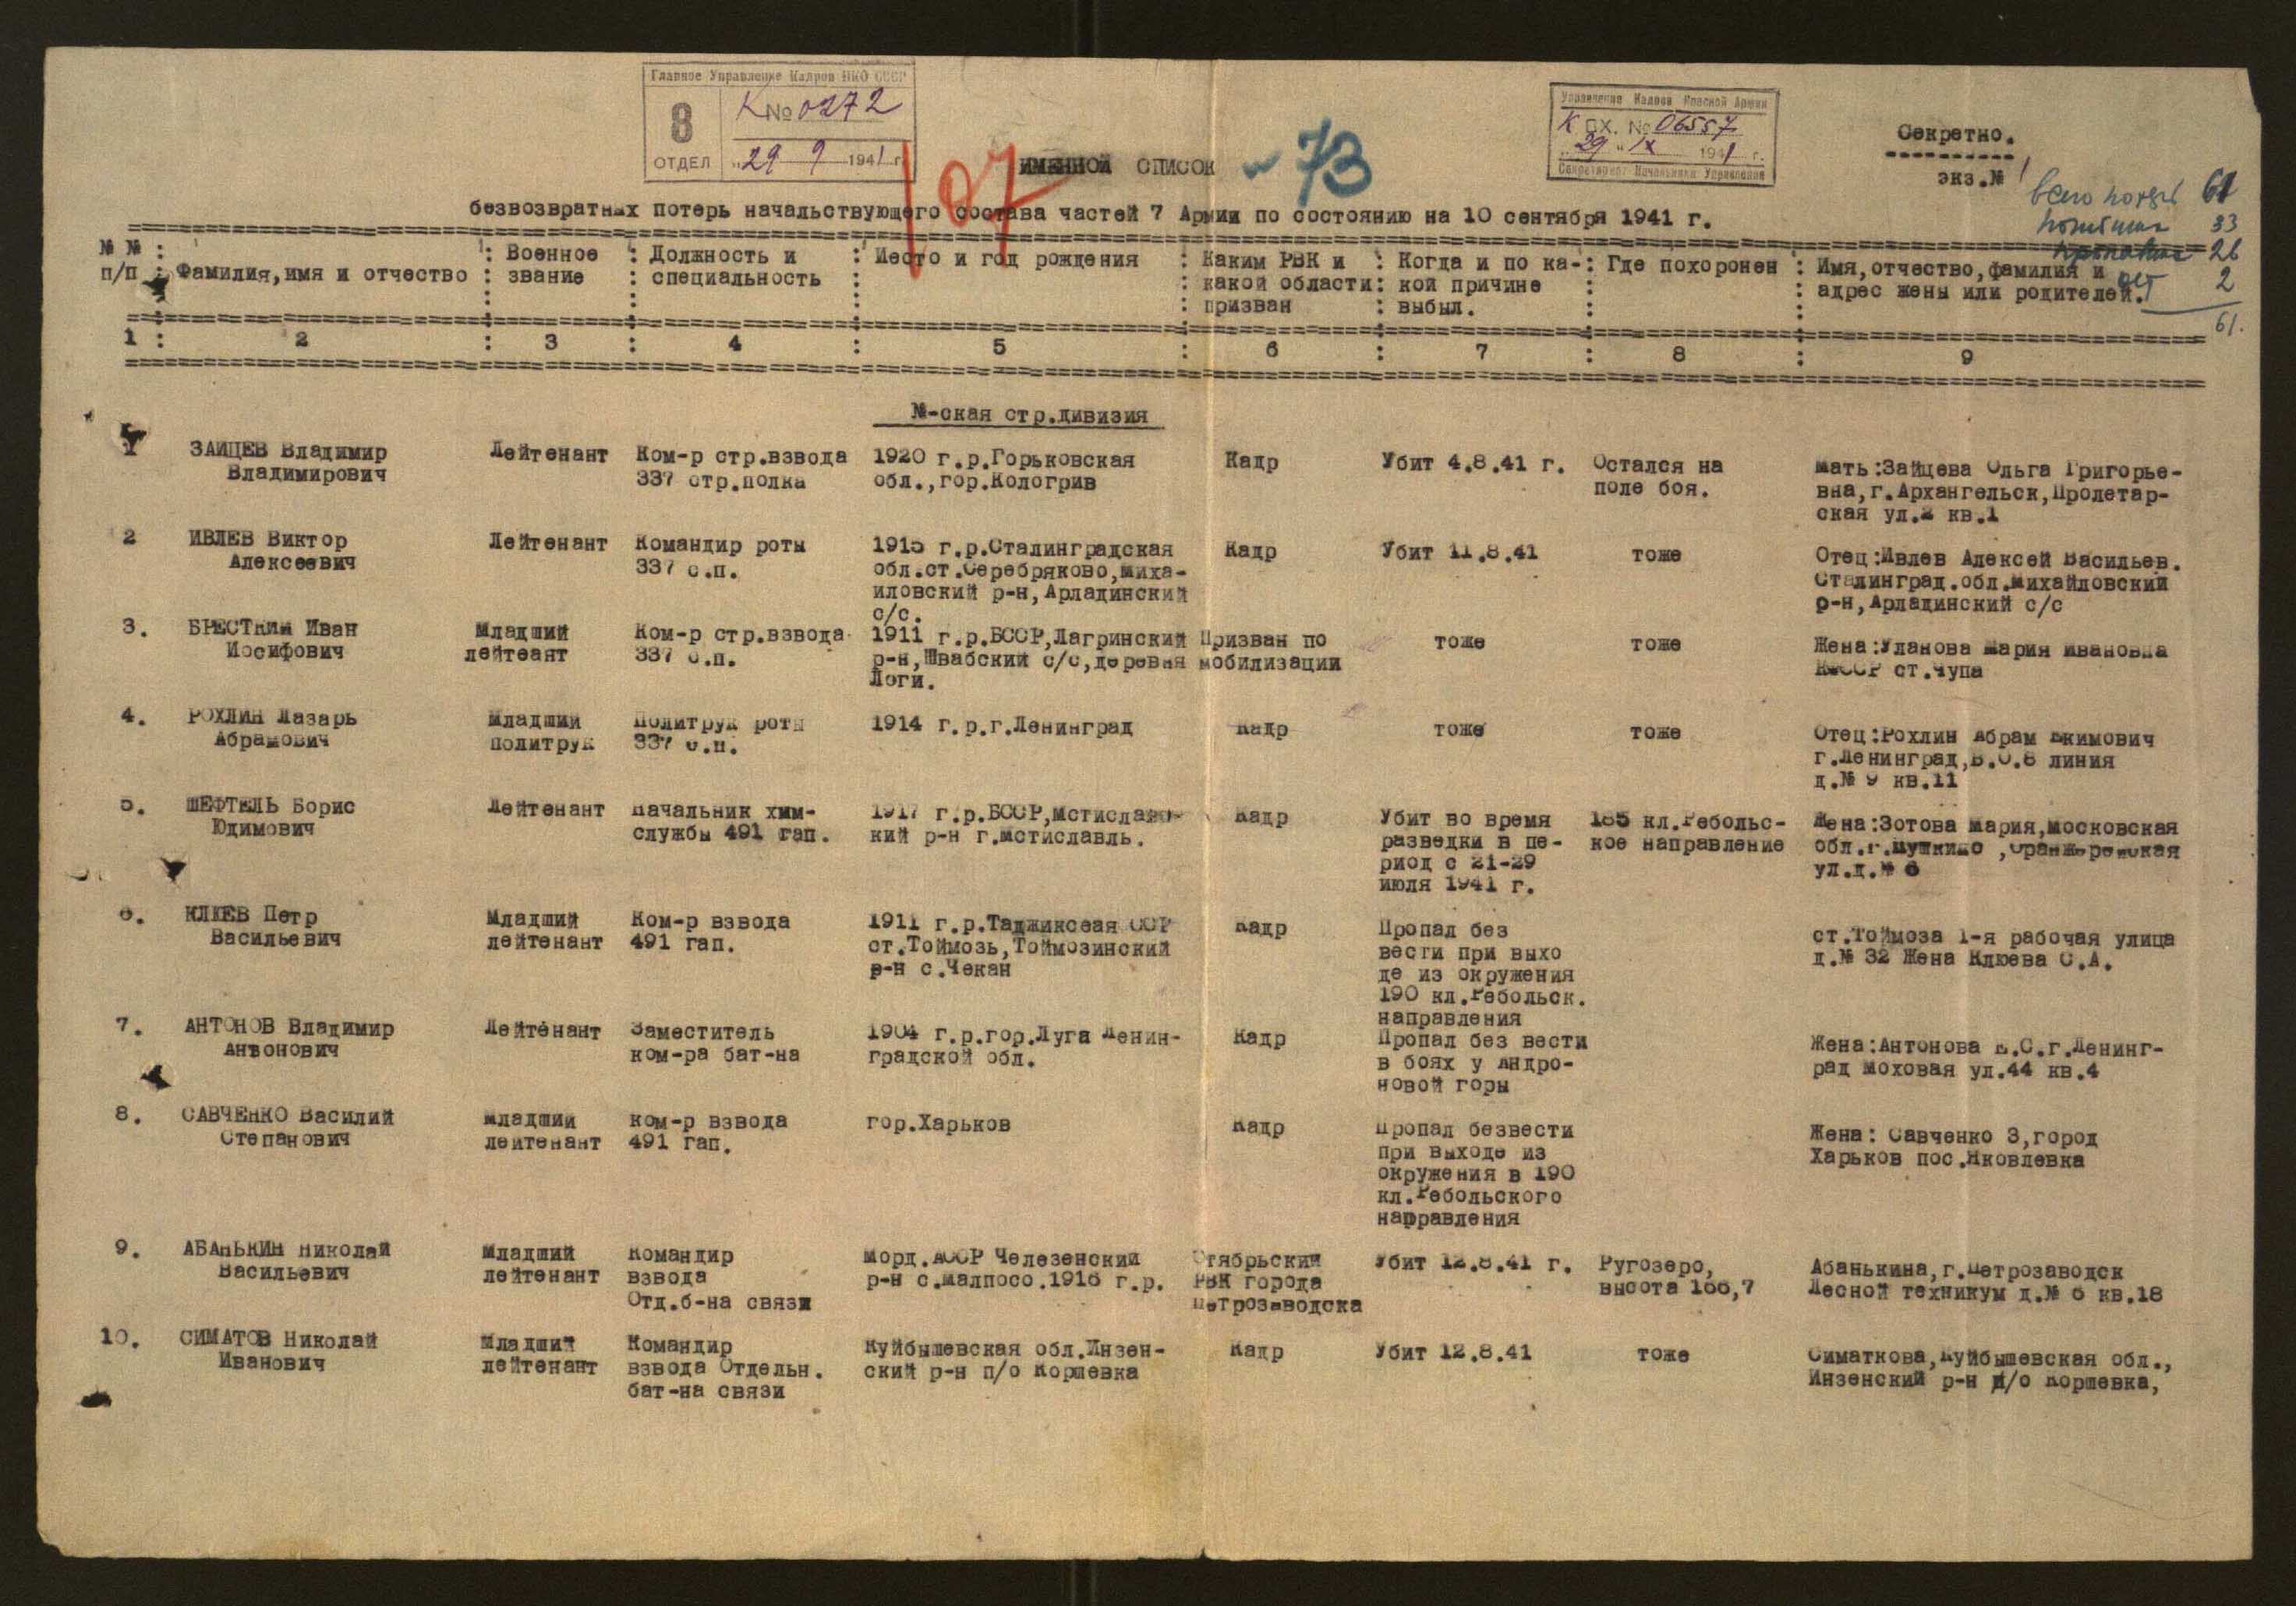 Главное Управление Кадров НКО СССР
8
ОТДЕЛ
К № 0272
"29" 9 1941 г.
107
ИМЕННОЙ СПИСОК
73
Управление Кадров Красной Армии
К вх. № 06557
"29" IX 1941 г.
Секретариат Начальника Управления
Секретно.
экз.№ 1
всего 61
33
26
2
61.
безвозвратных потерь начальствующего состава частей 7 Армии по состоянию на 10 сентября 1941 г.
№ № п/п : Фамилия,имя и отчество : Военное звание : Должность и специальность : Место и год рождения : Каким РВК и какой области призван : Когда и по какой причине выбыл. : Где похоронен : Имя,отчество,фамилия и адрес жены или родителей.
1 : 2 : 3 : 4 : 5 : 6 : 7 : 8 : 9
№-ская стр.дивизия
1 ЗАЙЦЕВ Владимир Лейтенант Ком-р стр.взвода 1920 г.р.Горьковская Кадр Убит 4.8.41 г. Остался на мать:Зайцева Ольга Григорье-
Владимирович 337 стр.полка обл.,гор.Кологрив поле боя. вна,г.Архангельск,Пролетар-
ская ул.2 кв.1
2 ИВЛЕВ Виктор Лейтенант Командир роты 1915 г.р.Сталинградская Кадр Убит 11.8.41 тоже Отец:Ивлев Алексей Васильев.
Алексеевич 337 с.п. обл.ст.Серебряково,миха- Сталинград.обл.михайловский
иловский р-н,Арлад​инский р-н,Арладинский с/с
с/с.
3. БРЕСТКИН Иван Младший Ком-р стр.взвода 1911 г.р.БССР,Лагринский Призван по тоже тоже Жена:Уланова мария ивановна
Иосифович лейтеант 337 с.п. р-н,Швабский с/с,деревня мобилизации КФССР ст.Чупа
Логи.
4. РОХЛИН Лазарь Младший Политрук роты 1914 г.р.г.Ленинград Кадр тоже тоже Отец:Рохлин Абрам Акимович
Абрамович политрук 337 с.п. г.Ленинград,В.О.8 линия
д.№ 9 кв.11
5. ШЕФТЕЛЬ Борис Лейтенант Начальник хим- 1917 г.р.БССР,мстиславс- Кадр Убит во время 185 кл.Ребольс- Жена:Зотова мария,московская
Юдимович службы 491 гап. кий р-н г.мстиславль. разведки в пе- кое направление обл.г.Пушкино ,Оранжерейская
риод с 21-29 ул.д.№ 6
июля 1941 г.
6. КЛЮЕВ Петр Младший Ком-р взвода 1911 г.р.Таджиксеая ССР Кадр Пропал без ст.Тоймоза 1-я рабочая улица
Васильевич лейтенант 491 гап. ст.Тоймозь,Тоймозинский вести при выхо д.№ 32 Жена Клюева С.А.
р-н с.Чекан де из окружения
190 кл.Ребольск.
направления
7. АНТОНОВ Владимир Лейтенант Заместитель 1904 г.р.гор.Луга Ленин- Кадр Пропал без вести Жена:Антонова С.г.Ленинг-
Антонович ком-ра бат-на градской обл. в боях у Андро- рад моховая ул.44 кв.4
новой горы
8. САВЧЕНКО Василий Младший ком-р взвода гор.Харьков Кадр Пропал безвести Жена: Савченко З,город
Степанович лейтенант 491 гап. при выходе из Харьков пос.Яковлевка
окружения в 190
кл.Ребольского
направления
9. АБАНЬКИН Николай Младший Командир Морд.АССР Челезенский Октябрьский Убит 12.8.41 г. Ругозеро, Абанькина,г.Петрозаводск
Васильевич лейтенант взвода р-н с.малпосо.1916 г.р. РВК города высота 166,7 Лесной техникум д.№ 6 кв.18
Отд.б-на связи Петрозаводска
10. СИМАТОВ Николай Младший Командир Куйбышевская обл.Инзен- Кадр Убит 12.8.41 тоже Симаткова,Куйбышевская обл.,
Иванович лейтенант взвода Отдельн. ский р-н п/о Коршевка Инзенский р-н п/о Коршевка,
бат-на связи